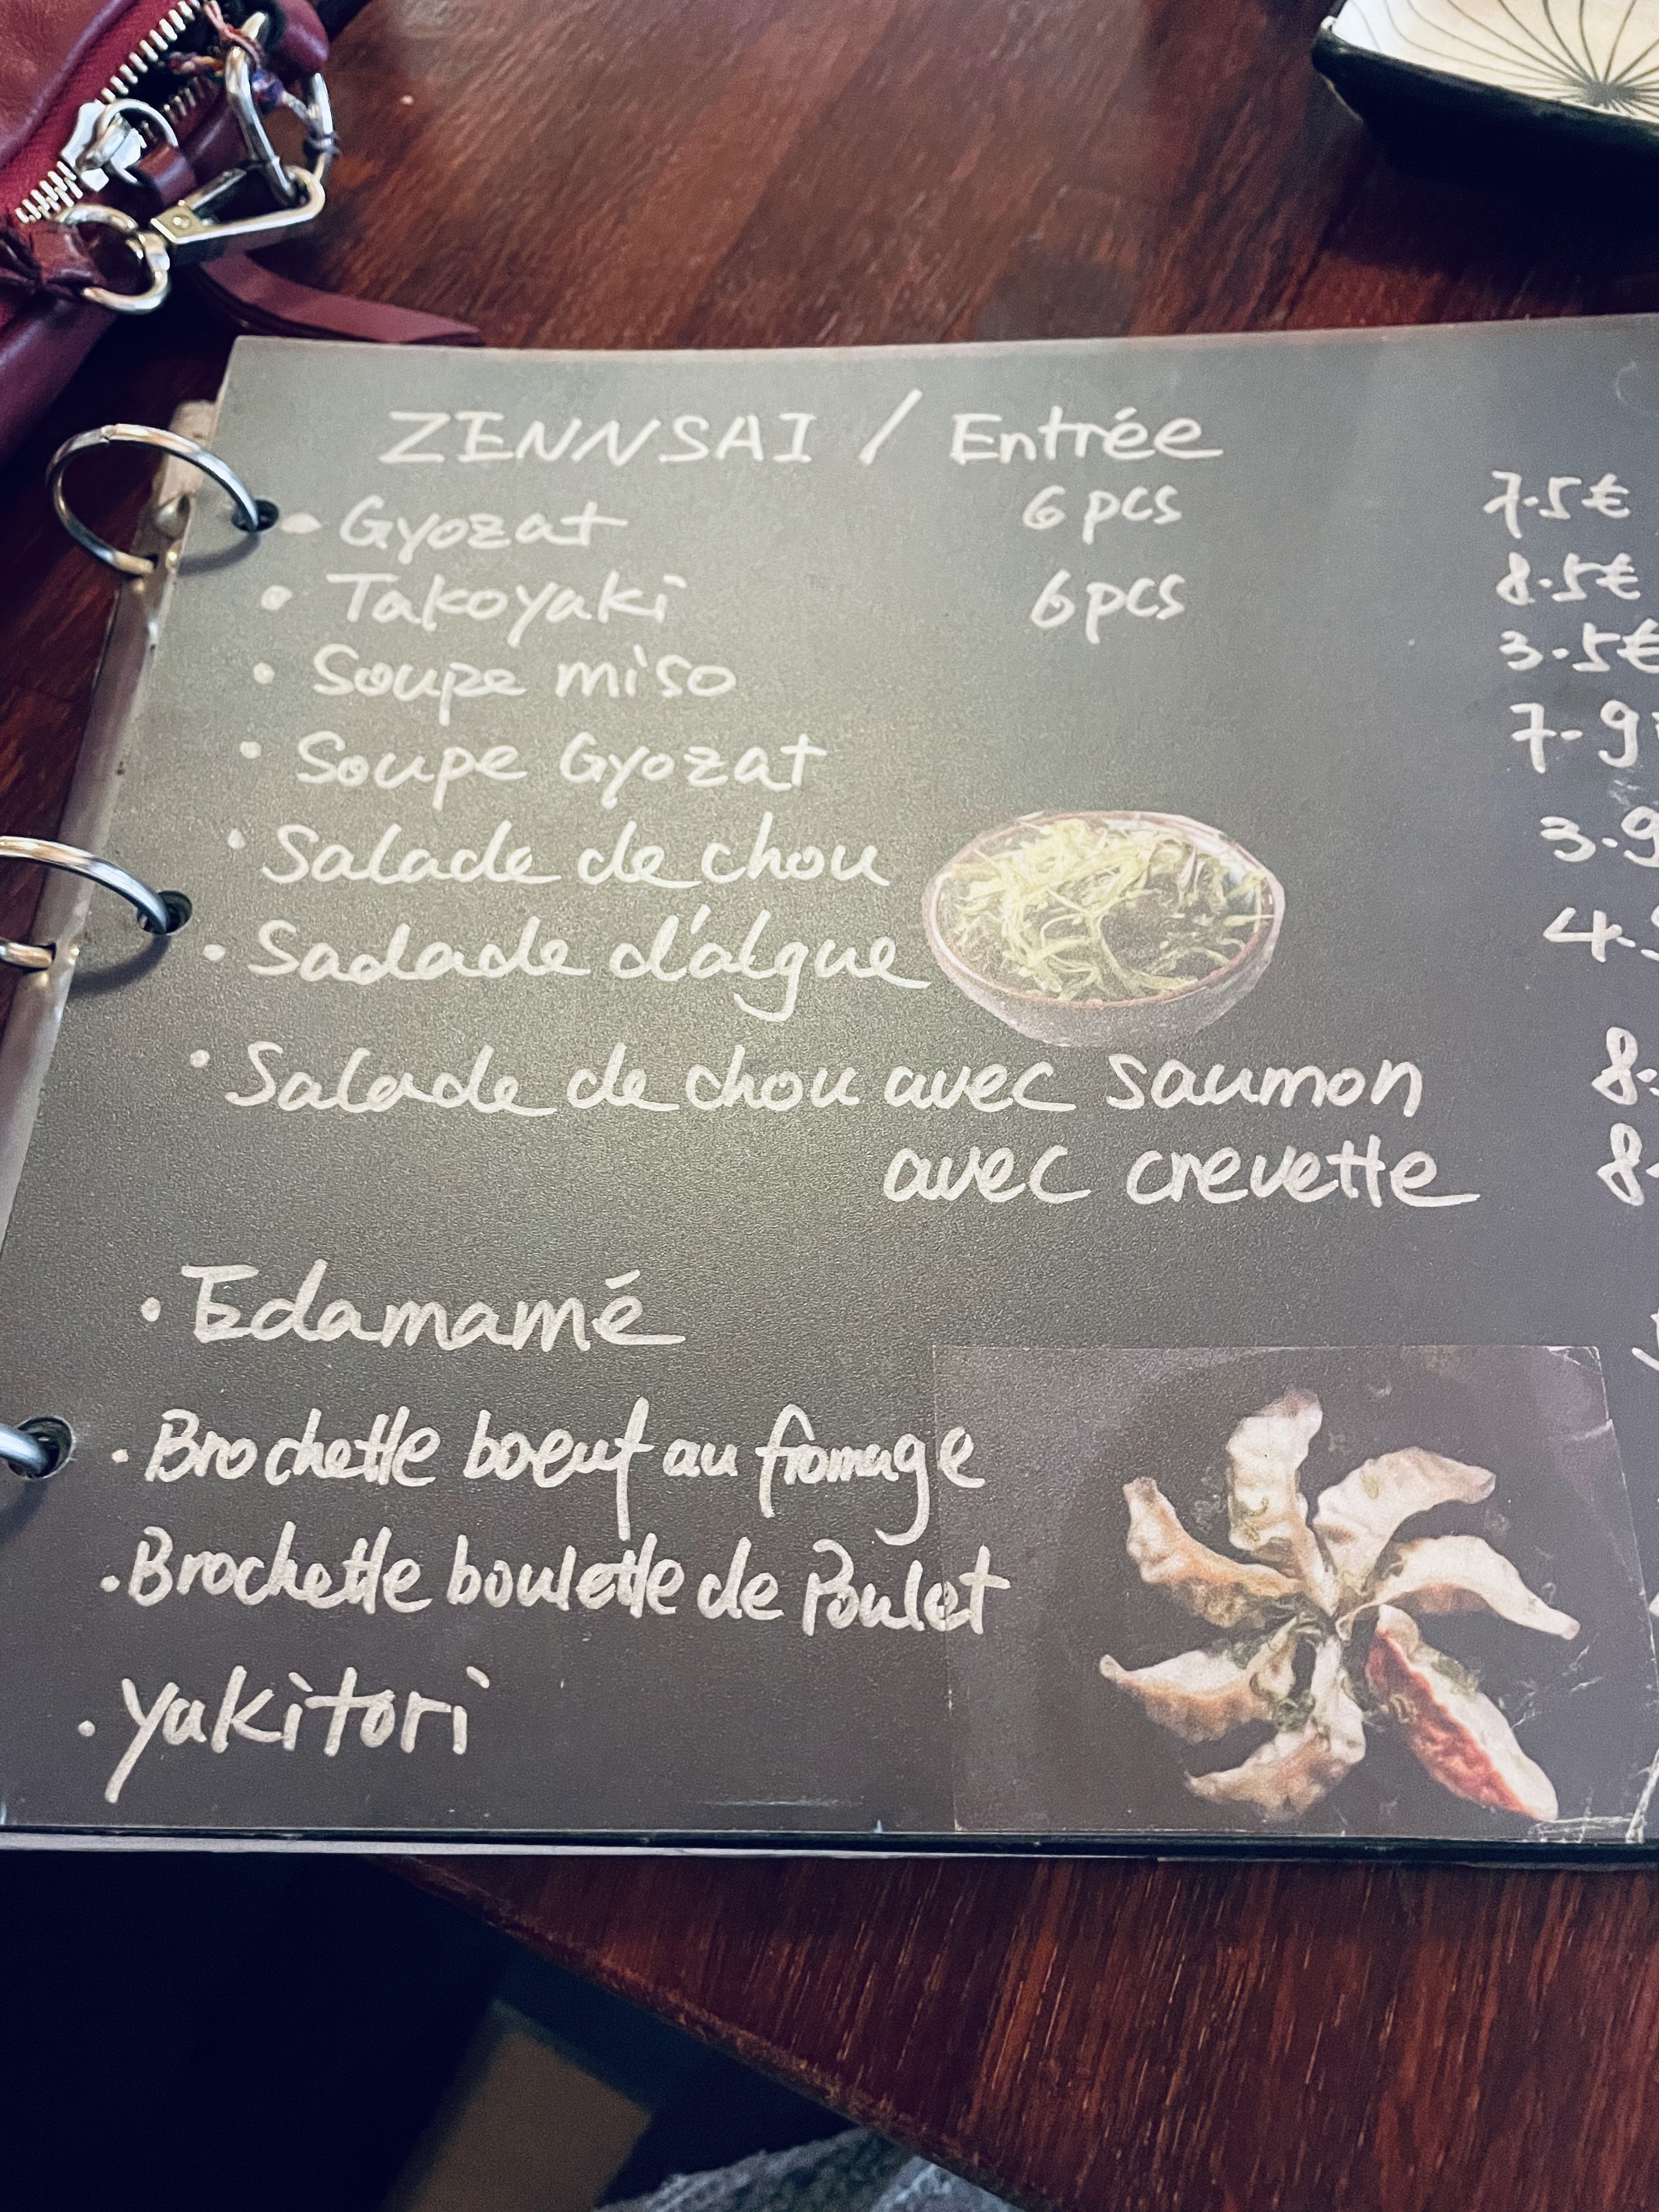 ZENNSAI / Entrée
• Gyozat 6 pcs 7.5€
• Takoyaki 6 pcs 8.5€
• Soupe miso 3.5€
• Soupe Gyozat 7.9
• Salade de chou 3.9
• Sadade d'algue 4.
• Salade de chou avec saumon 8.
avec crevette 8.
• Edamamé
• Brochette boeuf au fromage
• Brochette boulette de Poulet
• yakitori